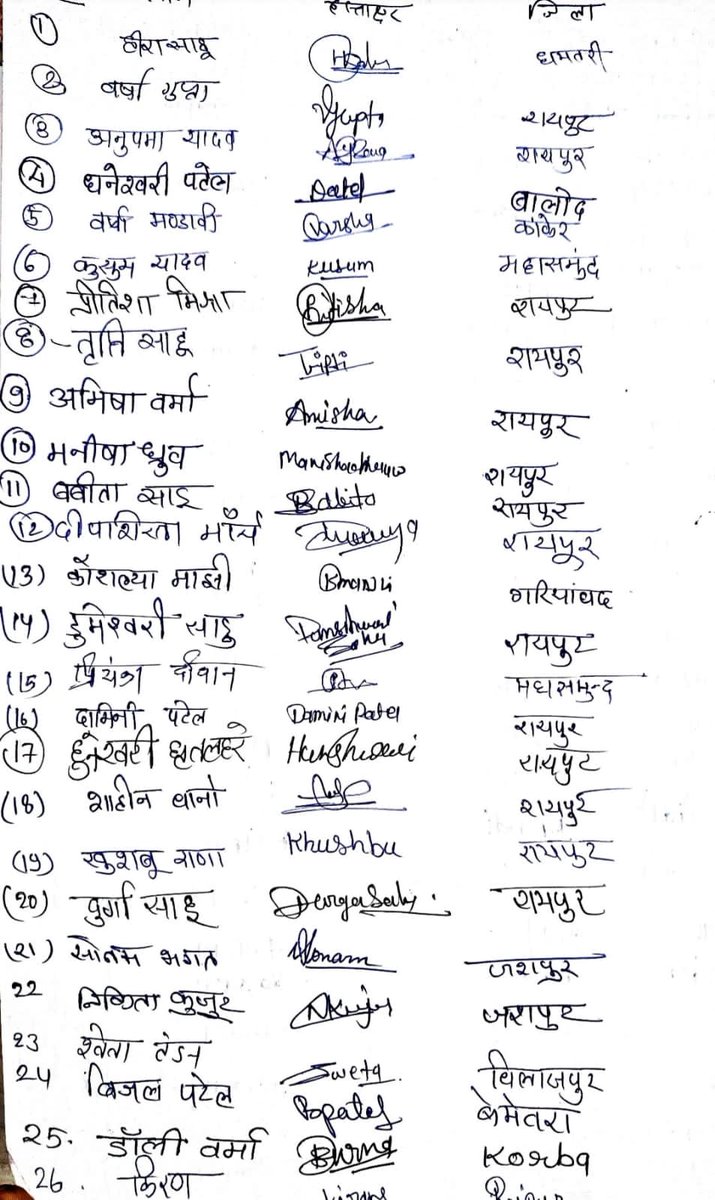 हस्ताक्षर जिला
1 हीरा साहू HSahu धमतरी
2 वर्षा गुप्ता VGupta रायपुर
3 अनुपमा यादव रायपुर
4 धनेश्वरी पटेल Patel बालोद
5 वर्षा मण्डावी Varsha कांकेर
6 कुसुम यादव Kusum महासमुंद
7 प्रीतिशा मिश्रा Pritisha रायपुर
8 - तृप्ति साहू Tripti रायपुर
9 अमिषा वर्मा Amisha रायपुर
10 मनीषा ध्रुव Manishadhruw रायपुर
11 बबीता साहू Babita रायपुर
12 दीपाशिखा मौर्य रायपुर
(13) कौशल्या माझी गरियाबंद
(14) डुमेश्वरी साहु Dameshwari Sahu रायपुर
(15) प्रियंका दीवान महासमुन्द
(16) दामिनी पटेल Damini Patel रायपुर
17 हुनेश्वरी धृतलहरे Huneshwari रायपुर
(18) शाहीन बानो रायपुर
(19) खुशबू राणा Khushbu रायपुर
(20) दुर्गा साहू Durga Sahu रायपुर
(21) सोनम भगत Sonam जशपुर
22 निकिता कुजुर NKujur जशपुर
23 श्वेता टंडन Sweta बिलासपुर
24 बिजल पटेल Bpatel बेमेतरा
25. डॉली वर्मा DVerma Korba
26. किरण